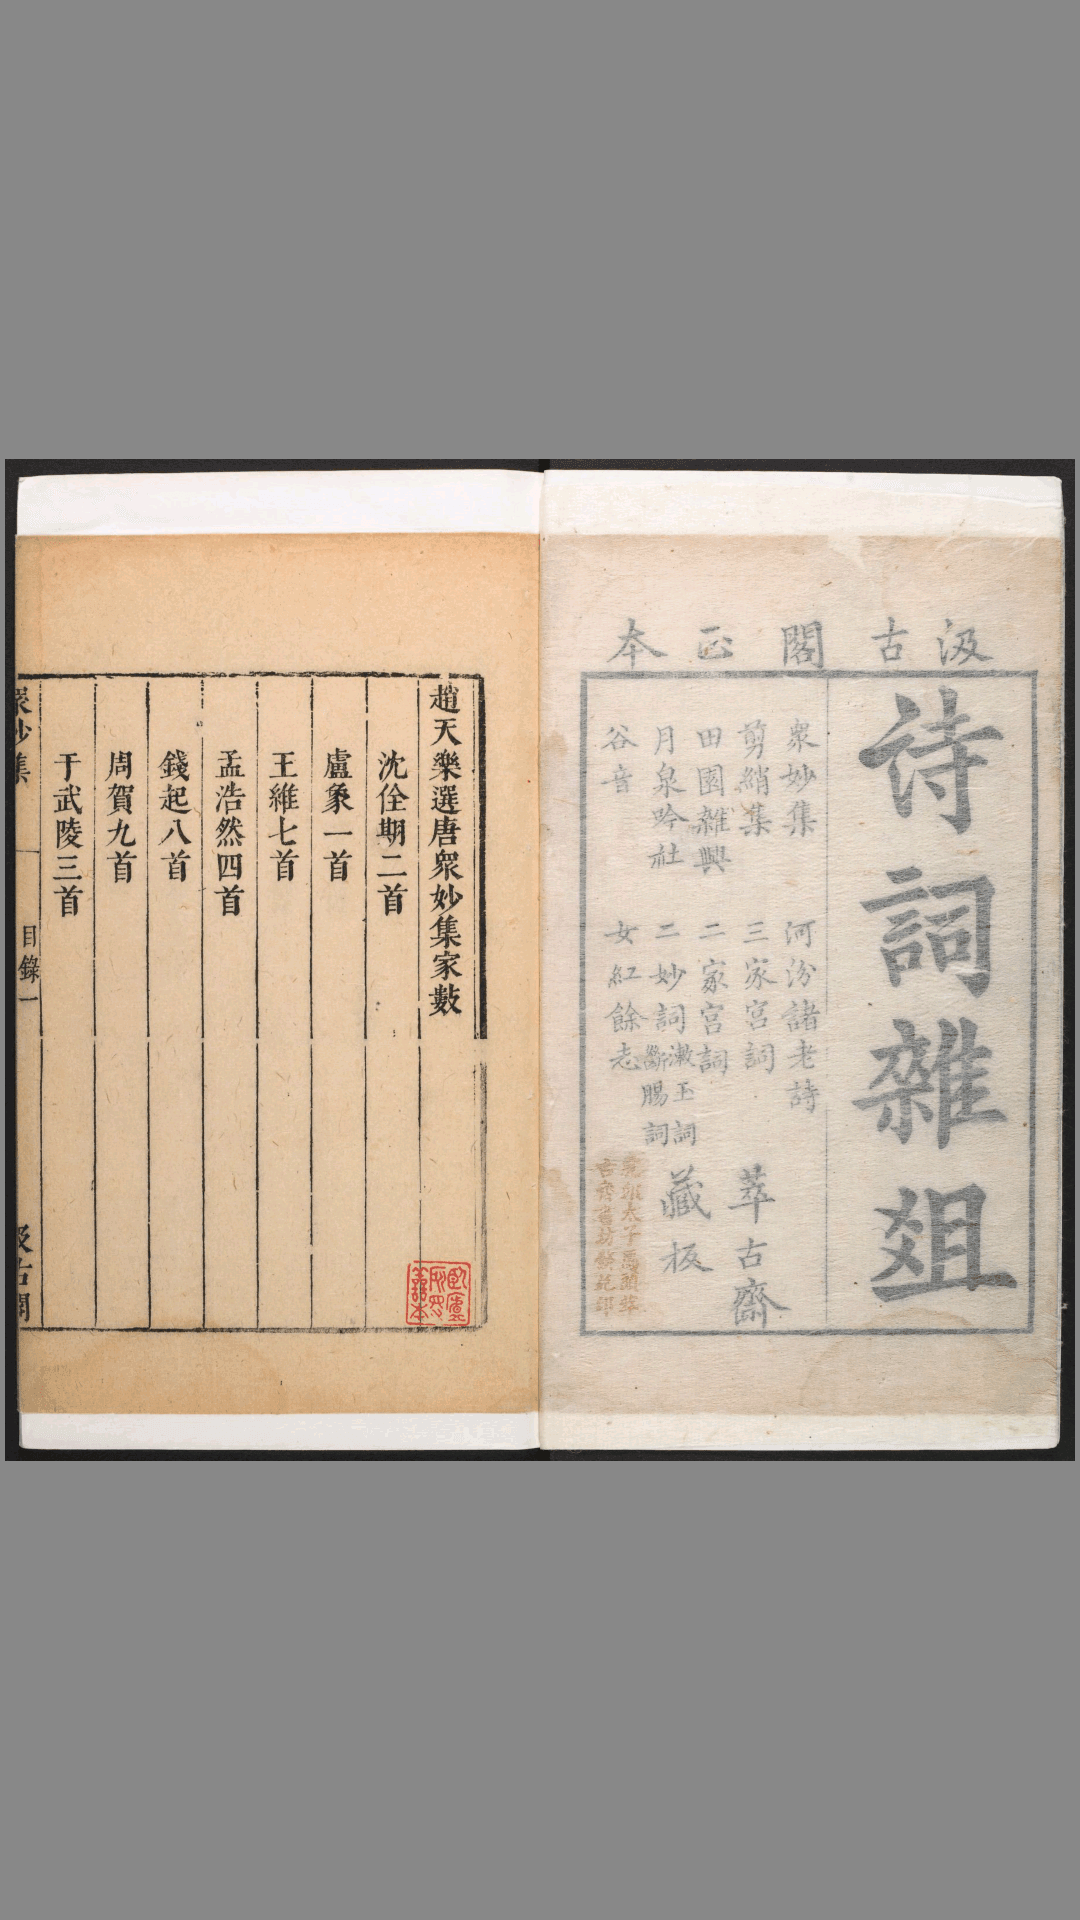 汲古閣正本
诗詞雜俎
衆妙集
河汾諸老詩
剪綃集
三家宮詞
田園雜興
二家宮詞
月泉吟社
二妙詞
漱玉詞
斷腸詞
谷音
女紅餘志
萃古齋
藏板
趙天樂選唐衆妙集家數
沈佺期二首
盧象一首
王維七首
孟浩然四首
錢起八首
周賀九首
于武陵三首
衆妙集
目錄一
汲古閣